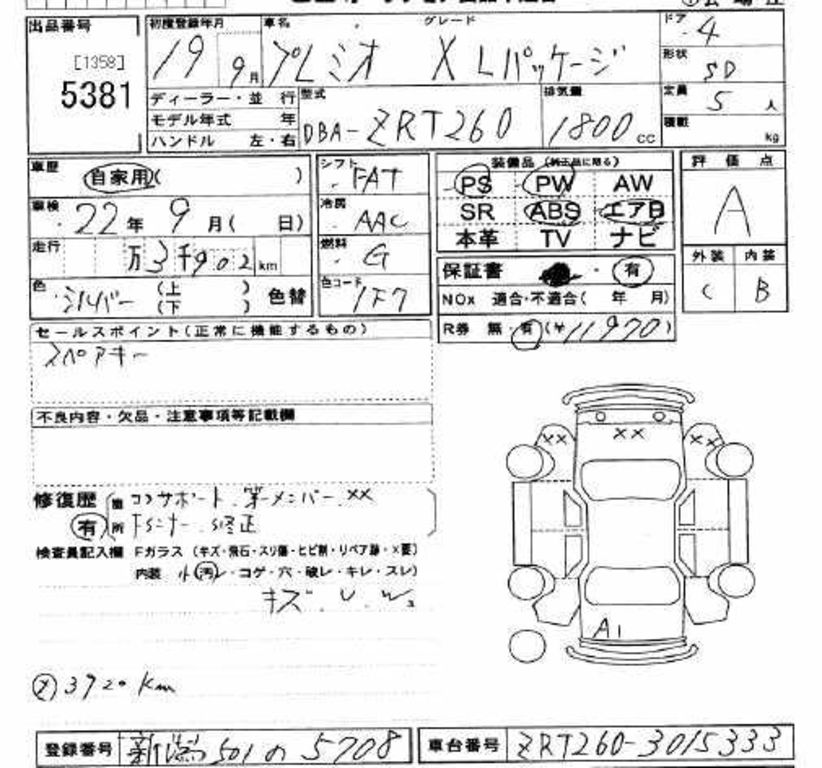 出品番号 初度登録年月 車名 グレード ドア 4
[1358] 19 9月 プレミオ X Lパッケージ 形状 SD
5381 ディーラー・並行 型式 排気量 定員 5 人
モデル年式 年 DBA-ZRT260 1800cc 積載 kg
ハンドル 左・右
車歴 自家用( ) シフト FAT 装備品(純正品に限る) 評価点
車検 22年 9月( 日) 冷房 AAC PS PW AW A
走行 万3千902km 燃料 G SR ABS エアB
色 シルバー (上 ) (下 ) 色替 色コード 1F7 本革 TV ナビ
保証書 ・ 有 外装 内装
NOx 適合・不適合( 年 月) C B
R券 無・有(¥11970)
セールスポイント(正常に機能するもの)
スペアキー
不良内容・欠品・注意事項等記載欄
修復歴 箇 コアサポート. 第一メンバー. XX
有 所
検査員記入欄 Fガラス(キズ・飛石・スリ傷・ヒビ割・リペア跡・×要)
内装 小(汚レ・コゲ・穴・破レ・キレ・スレ)
キズ. U. W2
XX XX XX
A1
3920 Km
登録番号 新潟501の5708 車台番号 ZRT260-3015333